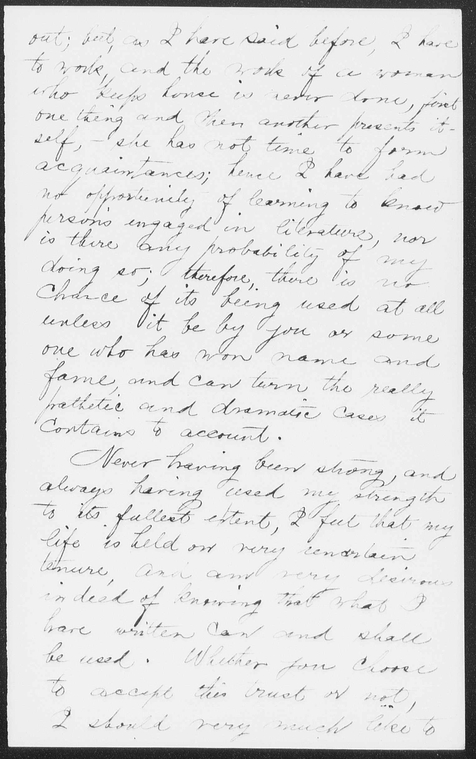 out; but, as I have said before, I have
to work, and the work of a woman
who keeps house is never done, first
one thing and then another presents it-
self, - she has not time to form
acquaintances; hence I have had
no opportunity of learning to know
persons engaged in literature, nor
is there any probability of my
doing so; therefore, there is no
chance of its being used at all
unless it be by you or some
one who has won name and
fame, and can turn the really
pathetic and dramatic cases it
contains to account.
Never having been strong, and
always having used my strength
to its fullest extent, I feel that my
life is held on very uncertain
tenure, and am very desirous
indeed of knowing that what I
have written can and shall
be used. Whether you choose
to accept this trust or not,
I should very much like to